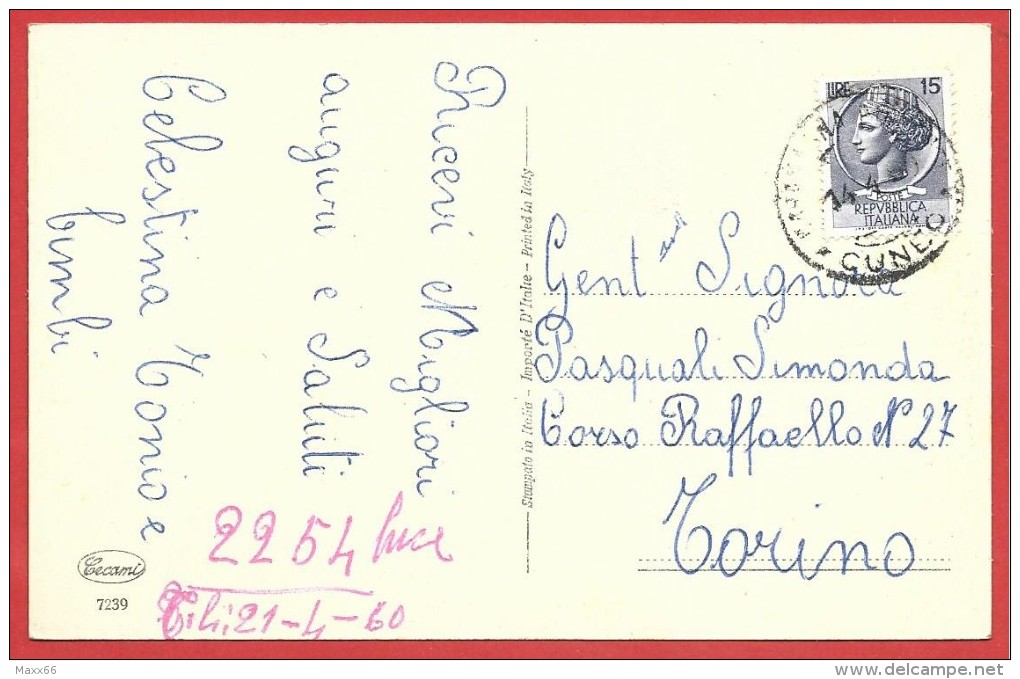 Ricevi Migliori
auguri e Saluti
Celestina Tonio e
Cecami
7239
2254 luce
21-4-60
Stampato in Italia - Importé D'Italie - Printed in Italy
LIRE 15
POSTE
REPVBBLICA
ITALIANA
14 4
CUNEO
Gent Signora
Pasquali Simonda
Corso Raffaello N 27
Torino
Maxx66
www.delcampe.net